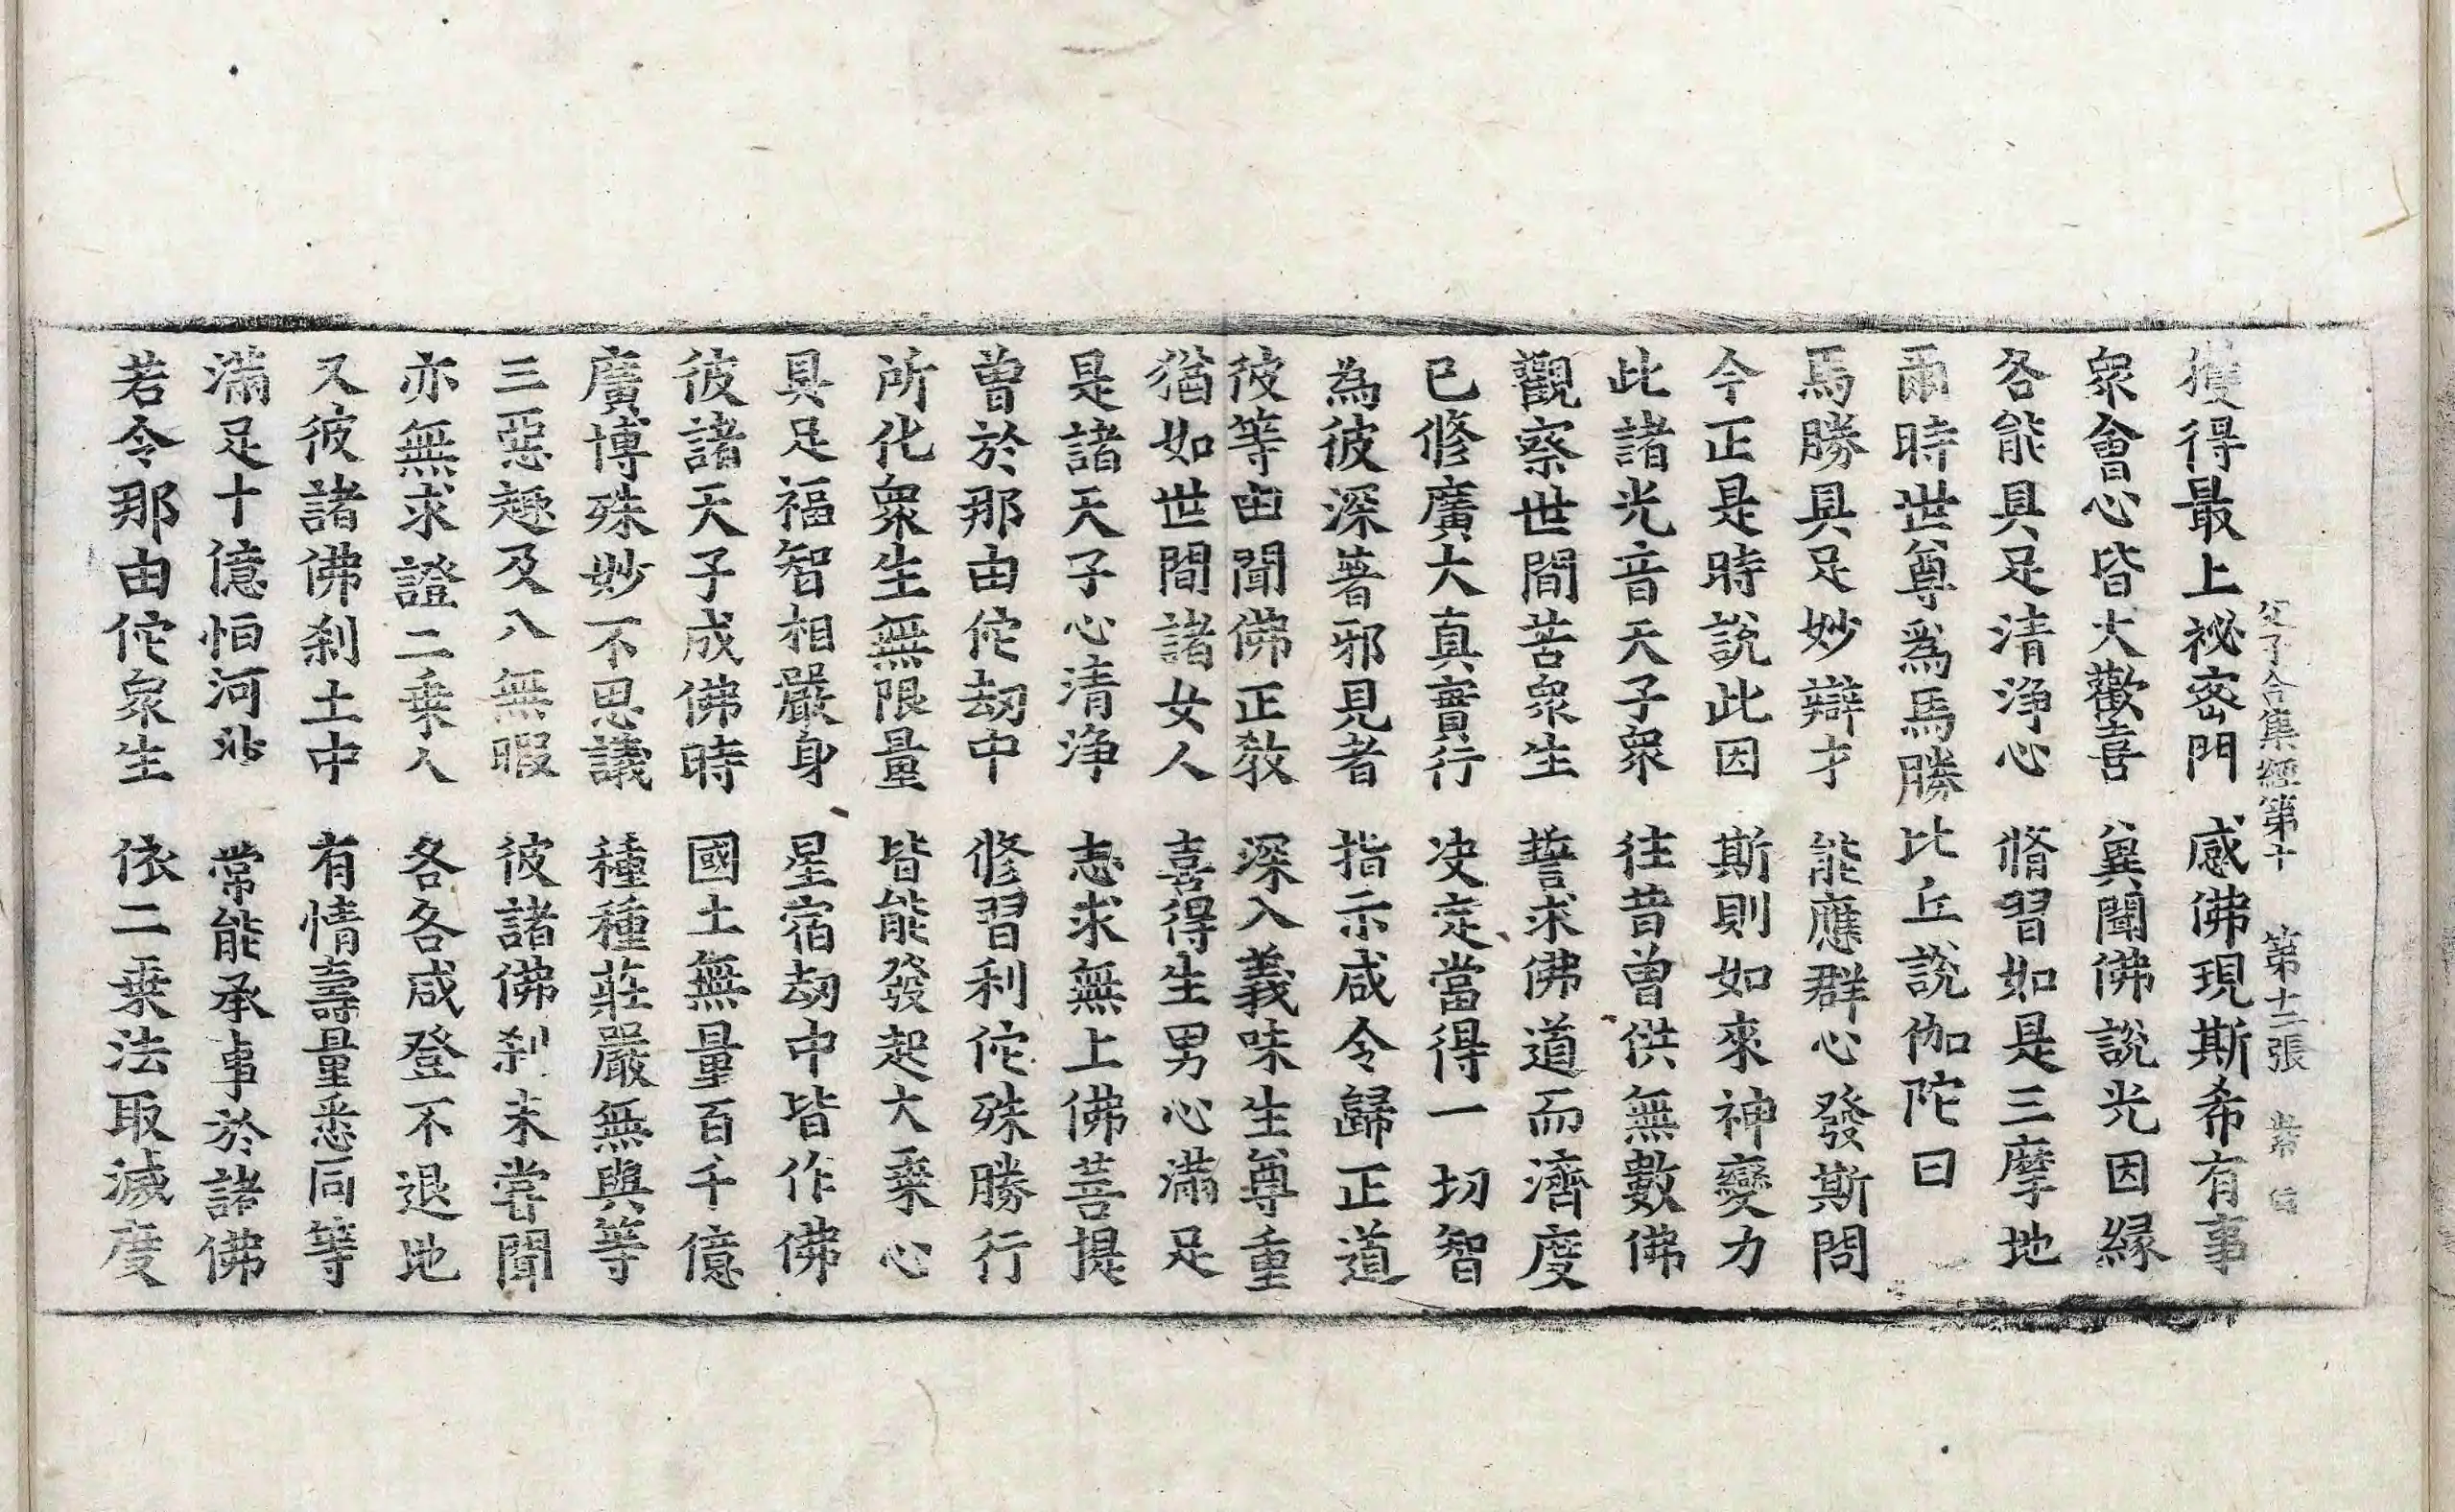 父子合集經第十 第十二張
獲得最上祕密門 感佛現斯希有事
衆會心皆大歡喜 兾聞佛說光因緣
各能具足清淨心 脩習如是三摩地
爾時世尊爲馬勝比丘說伽陀曰
馬勝具足妙辯才 能應群心發斯問
今正是時說此因 斯則如來神變力
此諸光音天子衆 往昔曾供無數佛
觀察世間苦衆生 誓求佛道而濟度
已修廣大真實行 决定當得一切智
為彼深著邪見者 指示咸令歸正道
彼等由聞佛正教 深入義味生尊重
猶如世間諸女人 喜得生男心滿足
是諸天子心清淨 志求無上佛菩提
曾於那由佗劫中 修習利佗殊勝行
所化衆生無限量 皆能發起大乗心
具足福智相嚴身 星宿劫中皆作佛
彼諸天子成佛時 國土無量百千億
廣博殊妙不思議 種種莊嚴無與等
三惡趣及八無暇 彼諸佛刹未嘗聞
亦無求證二乗人 各各咸登不退地
又彼諸佛刹土中 有情壽量悉同等
滿足十億恒河沙 常能承事於諸佛
若令那由佗衆生 依二乗法取滅度